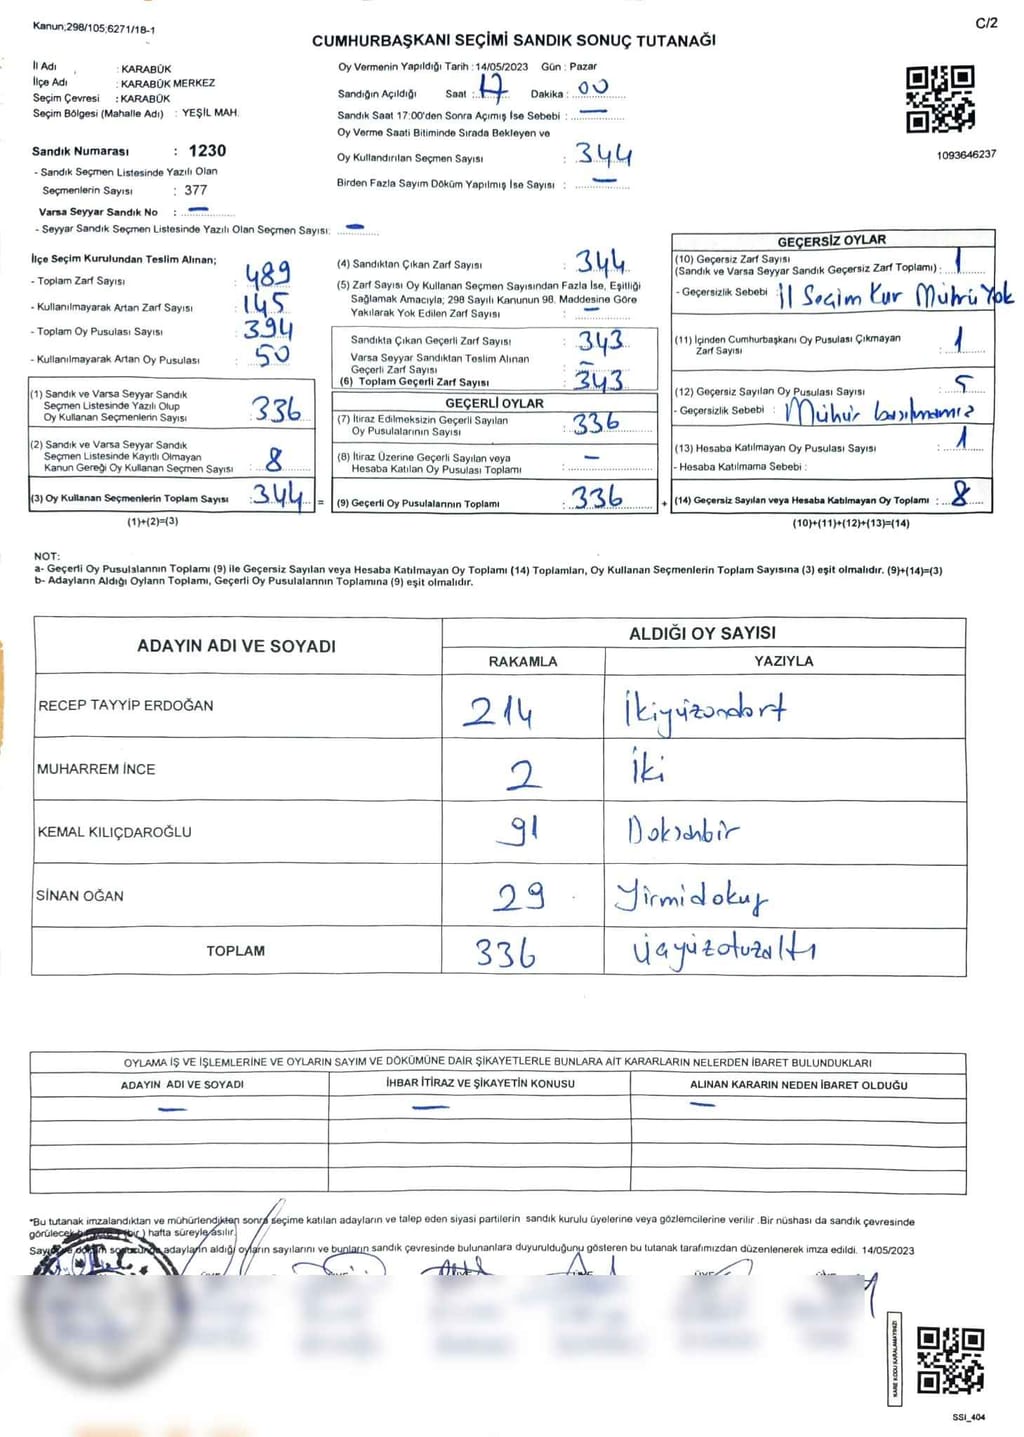 Kanun;298/105;6271/18-1
C/2
CUMHURBAŞKANI SEÇİMİ SANDIK SONUÇ TUTANAĞI
İl Adı : KARABÜK
İlçe Adı : KARABÜK MERKEZ
Seçim Çevresi : KARABÜK
Seçim Bölgesi (Mahalle Adı) : YEŞİL MAH.
Sandık Numarası : 1230
- Sandık Seçmen Listesinde Yazılı Olan
Seçmenlerin Sayısı : 377
Varsa Seyyar Sandık No : —
- Seyyar Sandık Seçmen Listesinde Yazılı Olan Seçmen Sayısı: —
Oy Vermenin Yapıldığı Tarih : 14/05/2023 Gün : Pazar
Sandığın Açıldığı Saat : 17 Dakika : 00
Sandık Saat 17:00'den Sonra Açımış İse Sebebi : —
Oy Verme Saati Bitiminde Sırada Bekleyen ve
Oy Kullandırılan Seçmen Sayısı : 344
Birden Fazla Sayım Döküm Yapılmış İse Sayısı : —
1093646237
İlçe Seçim Kurulundan Teslim Alınan;
- Toplam Zarf Sayısı : 489
- Kullanılmayarak Artan Zarf Sayısı : 145
- Toplam Oy Pusulası Sayısı : 394
- Kullanılmayarak Artan Oy Pusulası : 50
(1) Sandık ve Varsa Seyyar Sandık
Seçmen Listesinde Yazılı Olup
Oy Kullanan Seçmenlerin Sayısı : 336
(2) Sandık ve Varsa Seyyar Sandık
Seçmen Listesinde Kayıtlı Olmayan
Kanun Gereği Oy Kullanan Seçmen Sayısı : 8
(3) Oy Kullanan Seçmenlerin Toplam Sayısı : 344 =
(1)+(2)=(3)
(4) Sandıktan Çıkan Zarf Sayısı : 344
(5) Zarf Sayısı Oy Kullanan Seçmen Sayısından Fazla İse, Eşitliği
Sağlamak Amacıyla; 298 Sayılı Kanunun 98. Maddesine Göre
Yakılarak Yok Edilen Zarf Sayısı : —
Sandıkta Çıkan Geçerli Zarf Sayısı : 343
Varsa Seyyar Sandıktan Teslim Alınan
Geçerli Zarf Sayısı : —
(6) Toplam Geçerli Zarf Sayısı : 343
GEÇERLİ OYLAR
(7) İtiraz Edilmeksizin Geçerli Sayılan
Oy Pusulalarının Sayısı : 336
(8) İtiraz Üzerine Geçerli Sayılan veya
Hesaba Katılan Oy Pusulası Toplamı : —
(9) Geçerli Oy Pusulalarının Toplamı : 336 +
GEÇERSİZ OYLAR
(10) Geçersiz Zarf Sayısı
(Sandık ve Varsa Seyyar Sandık Geçersiz Zarf Toplamı) : 1
- Geçersizlik Sebebi : İl Seçim Kur Mührü Yok
(11) İçinden Cumhurbaşkanı Oy Pusulası Çıkmayan
Zarf Sayısı : 1
(12) Geçersiz Sayılan Oy Pusulası Sayısı : 5
- Geçersizlik Sebebi : Mühür basılmamış
(13) Hesaba Katılmayan Oy Pusulası Sayısı : 1
- Hesaba Katılmama Sebebi :
(14) Geçersiz Sayılan veya Hesaba Katılmayan Oy Toplamı : 8
(10)+(11)+(12)+(13)=(14)
NOT:
a- Geçerli Oy Pusulalarının Toplamı (9) ile Geçersiz Sayılan veya Hesaba Katılmayan Oy Toplamı (14) Toplamları, Oy Kullanan Seçmenlerin Toplam Sayısına (3) eşit olmalıdır. (9)+(14)=(3)
b- Adayların Aldığı Oyların Toplamı, Geçerli Oy Pusulalarının Toplamına (9) eşit olmalıdır.
ADAYIN ADI VE SOYADI
ALDIĞI OY SAYISI
RAKAMLA YAZIYLA
RECEP TAYYİP ERDOĞAN 214 İkiyüzondört
MUHARREM İNCE 2 İki
KEMAL KILIÇDAROĞLU 91 Doksanbir
SİNAN OĞAN 29 Yirmidokuz
TOPLAM 336 Üçyüzotuzaltı
OYLAMA İŞ VE İŞLEMLERİNE VE OYLARIN SAYIM VE DÖKÜMÜNE DAİR ŞİKAYETLERLE BUNLARA AİT KARARLARIN NELERDEN İBARET BULUNDUKLARI
ADAYIN ADI VE SOYADI İHBAR İTİRAZ VE ŞİKAYETİN KONUSU ALINAN KARARIN NEDEN İBARET OLDUĞU
— — —
*Bu tutanak imzalandıktan ve mühürlendikten sonra seçime katılan adayların ve talep eden siyasi partilerin sandık kurulu üyelerine veya gözlemcilerine verilir .Bir nüshası da sandık çevresinde
görülecek bir yere (bir ) hafta süreyle asılır.
Sayım ve döküm sonucunda adayların aldığı oyların sayılarını ve bunların sandık çevresinde bulunanlara duyurulduğunu gösteren bu tutanak tarafımızdan düzenlenerek imza edildi. 14/05/2023
KARE KODU KARALAMAYINIZ!
SSI_404